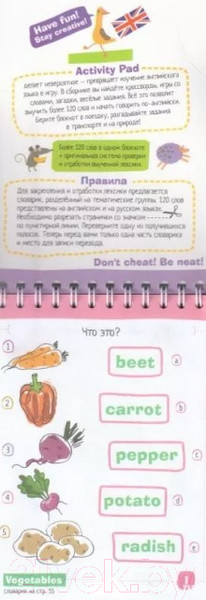 Have Fun!
Stay creative!
Activity Pad
делает невероятное – превращает изучение английского
языка в игру. В сборнике вы найдёте кроссворды, игры со
словами, загадки, весёлые задания. Всё это позволит
выучить более 120 слов и начать говорить по-английски.
Берите блокнот в поездку, разгадывайте задания
в транспорте и на природе!
Более 120 слов в одном блокноте
+ оригинальная система проверки
и отработки выученной лексики.
Правила
Для закрепления и отработки лексики предлагается
словарик, разделённый на тематические группы. 120 слов
представлены на английском и на русском языках.
Необходимо разрезать странички со значком
по пунктирной линии. Переверните одну из получившихся
полосок. Теперь перед вами только одна часть словарика
и место для записи перевода.
Don't cheat! Be neat!
Что это?
1 beet a
2 carrot b
3 pepper c
4 potato d
5 radish e
Vegetables
словарик на стр. 55
1